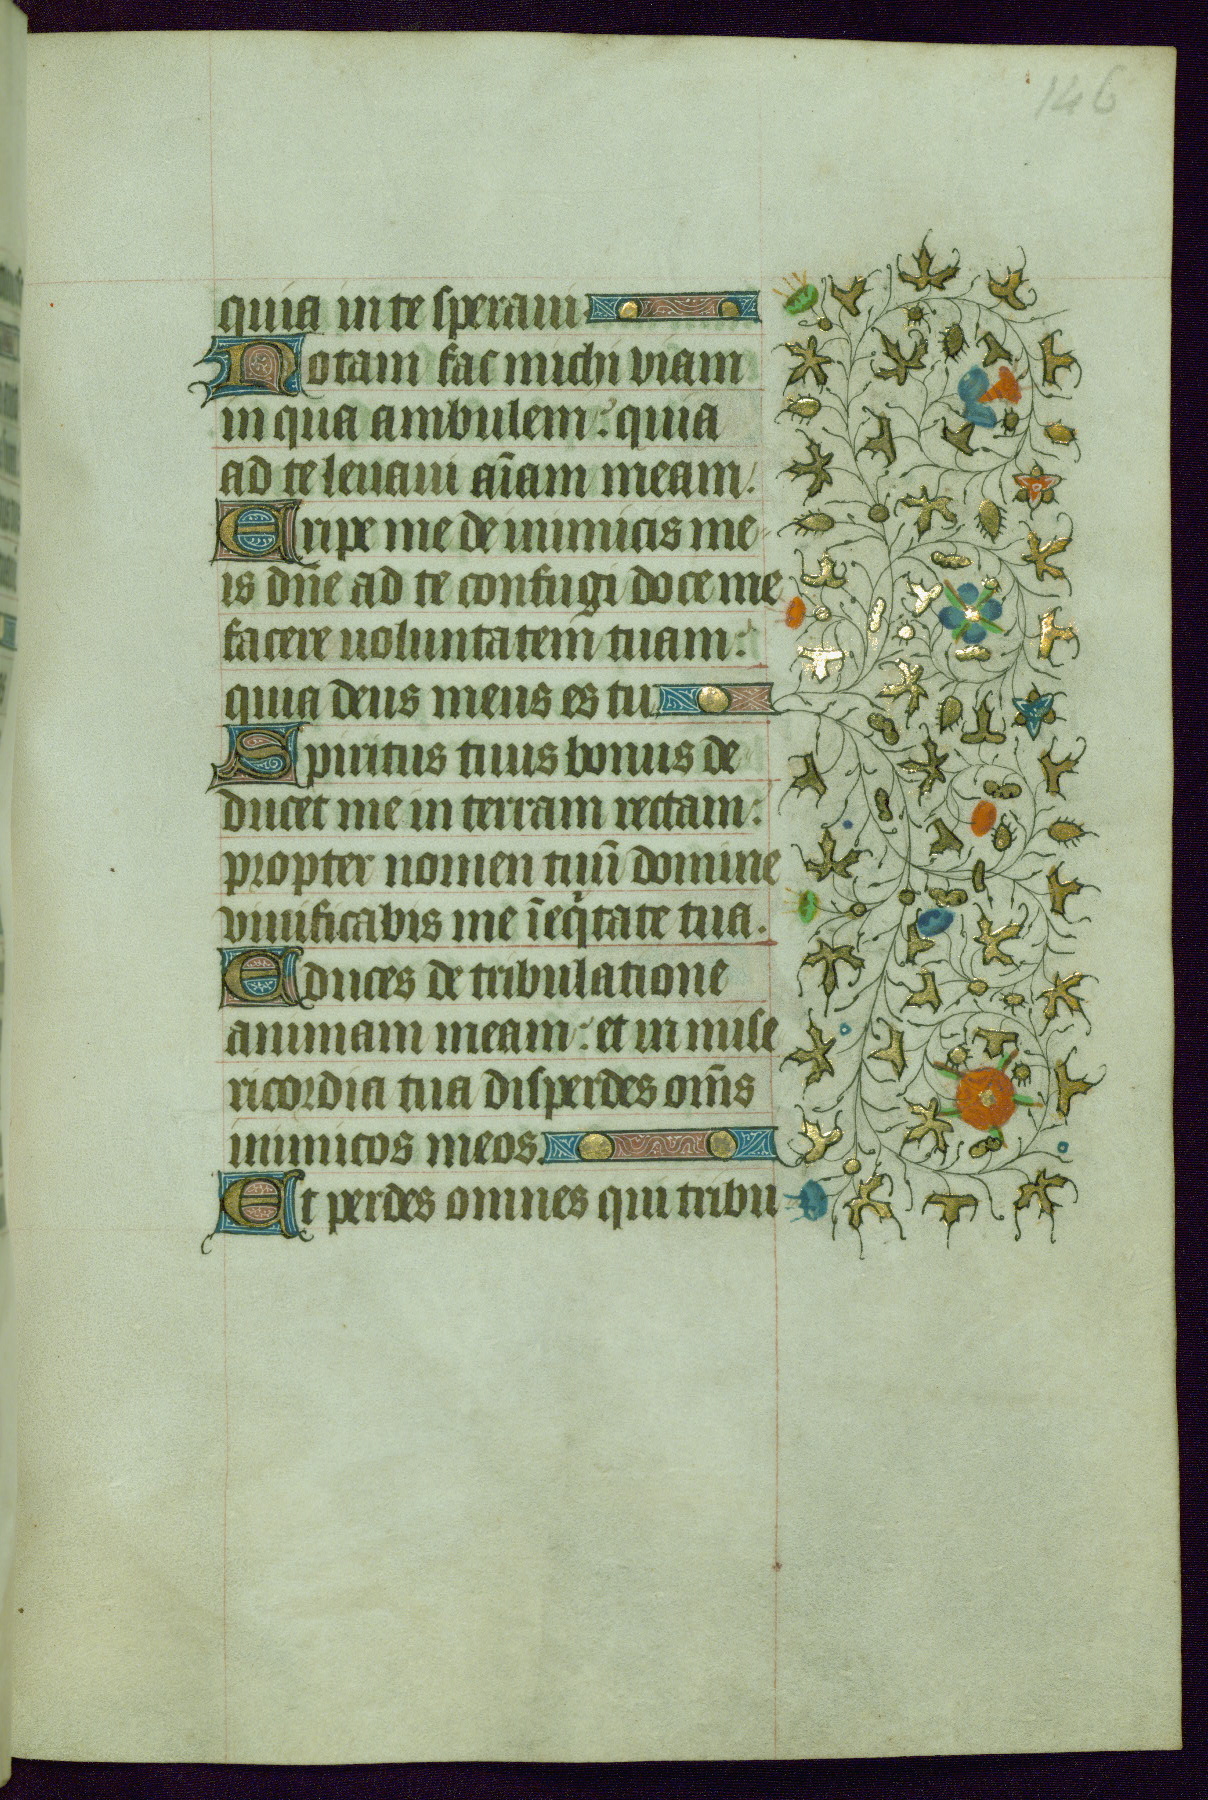 146
quia in te speraui
Notam fac michi viam
in qua ambulem: quia
ad te leuaui aīam meam.
Eripe me de inimicis me
is dn̄e ad te confugi doce me
facere uoluntatem tuam:
quia deus meus es tu
Spiritus tuus bonus de
ducet me in terram rectam:
propter nomen tuū domine
viuificabis me ī eqͥtate tua.
Educes de tribulatione
animam meam: et in mise
ricordia tua disperdes om̄s
inimicos meos.
Et perdes omnes qui tribu